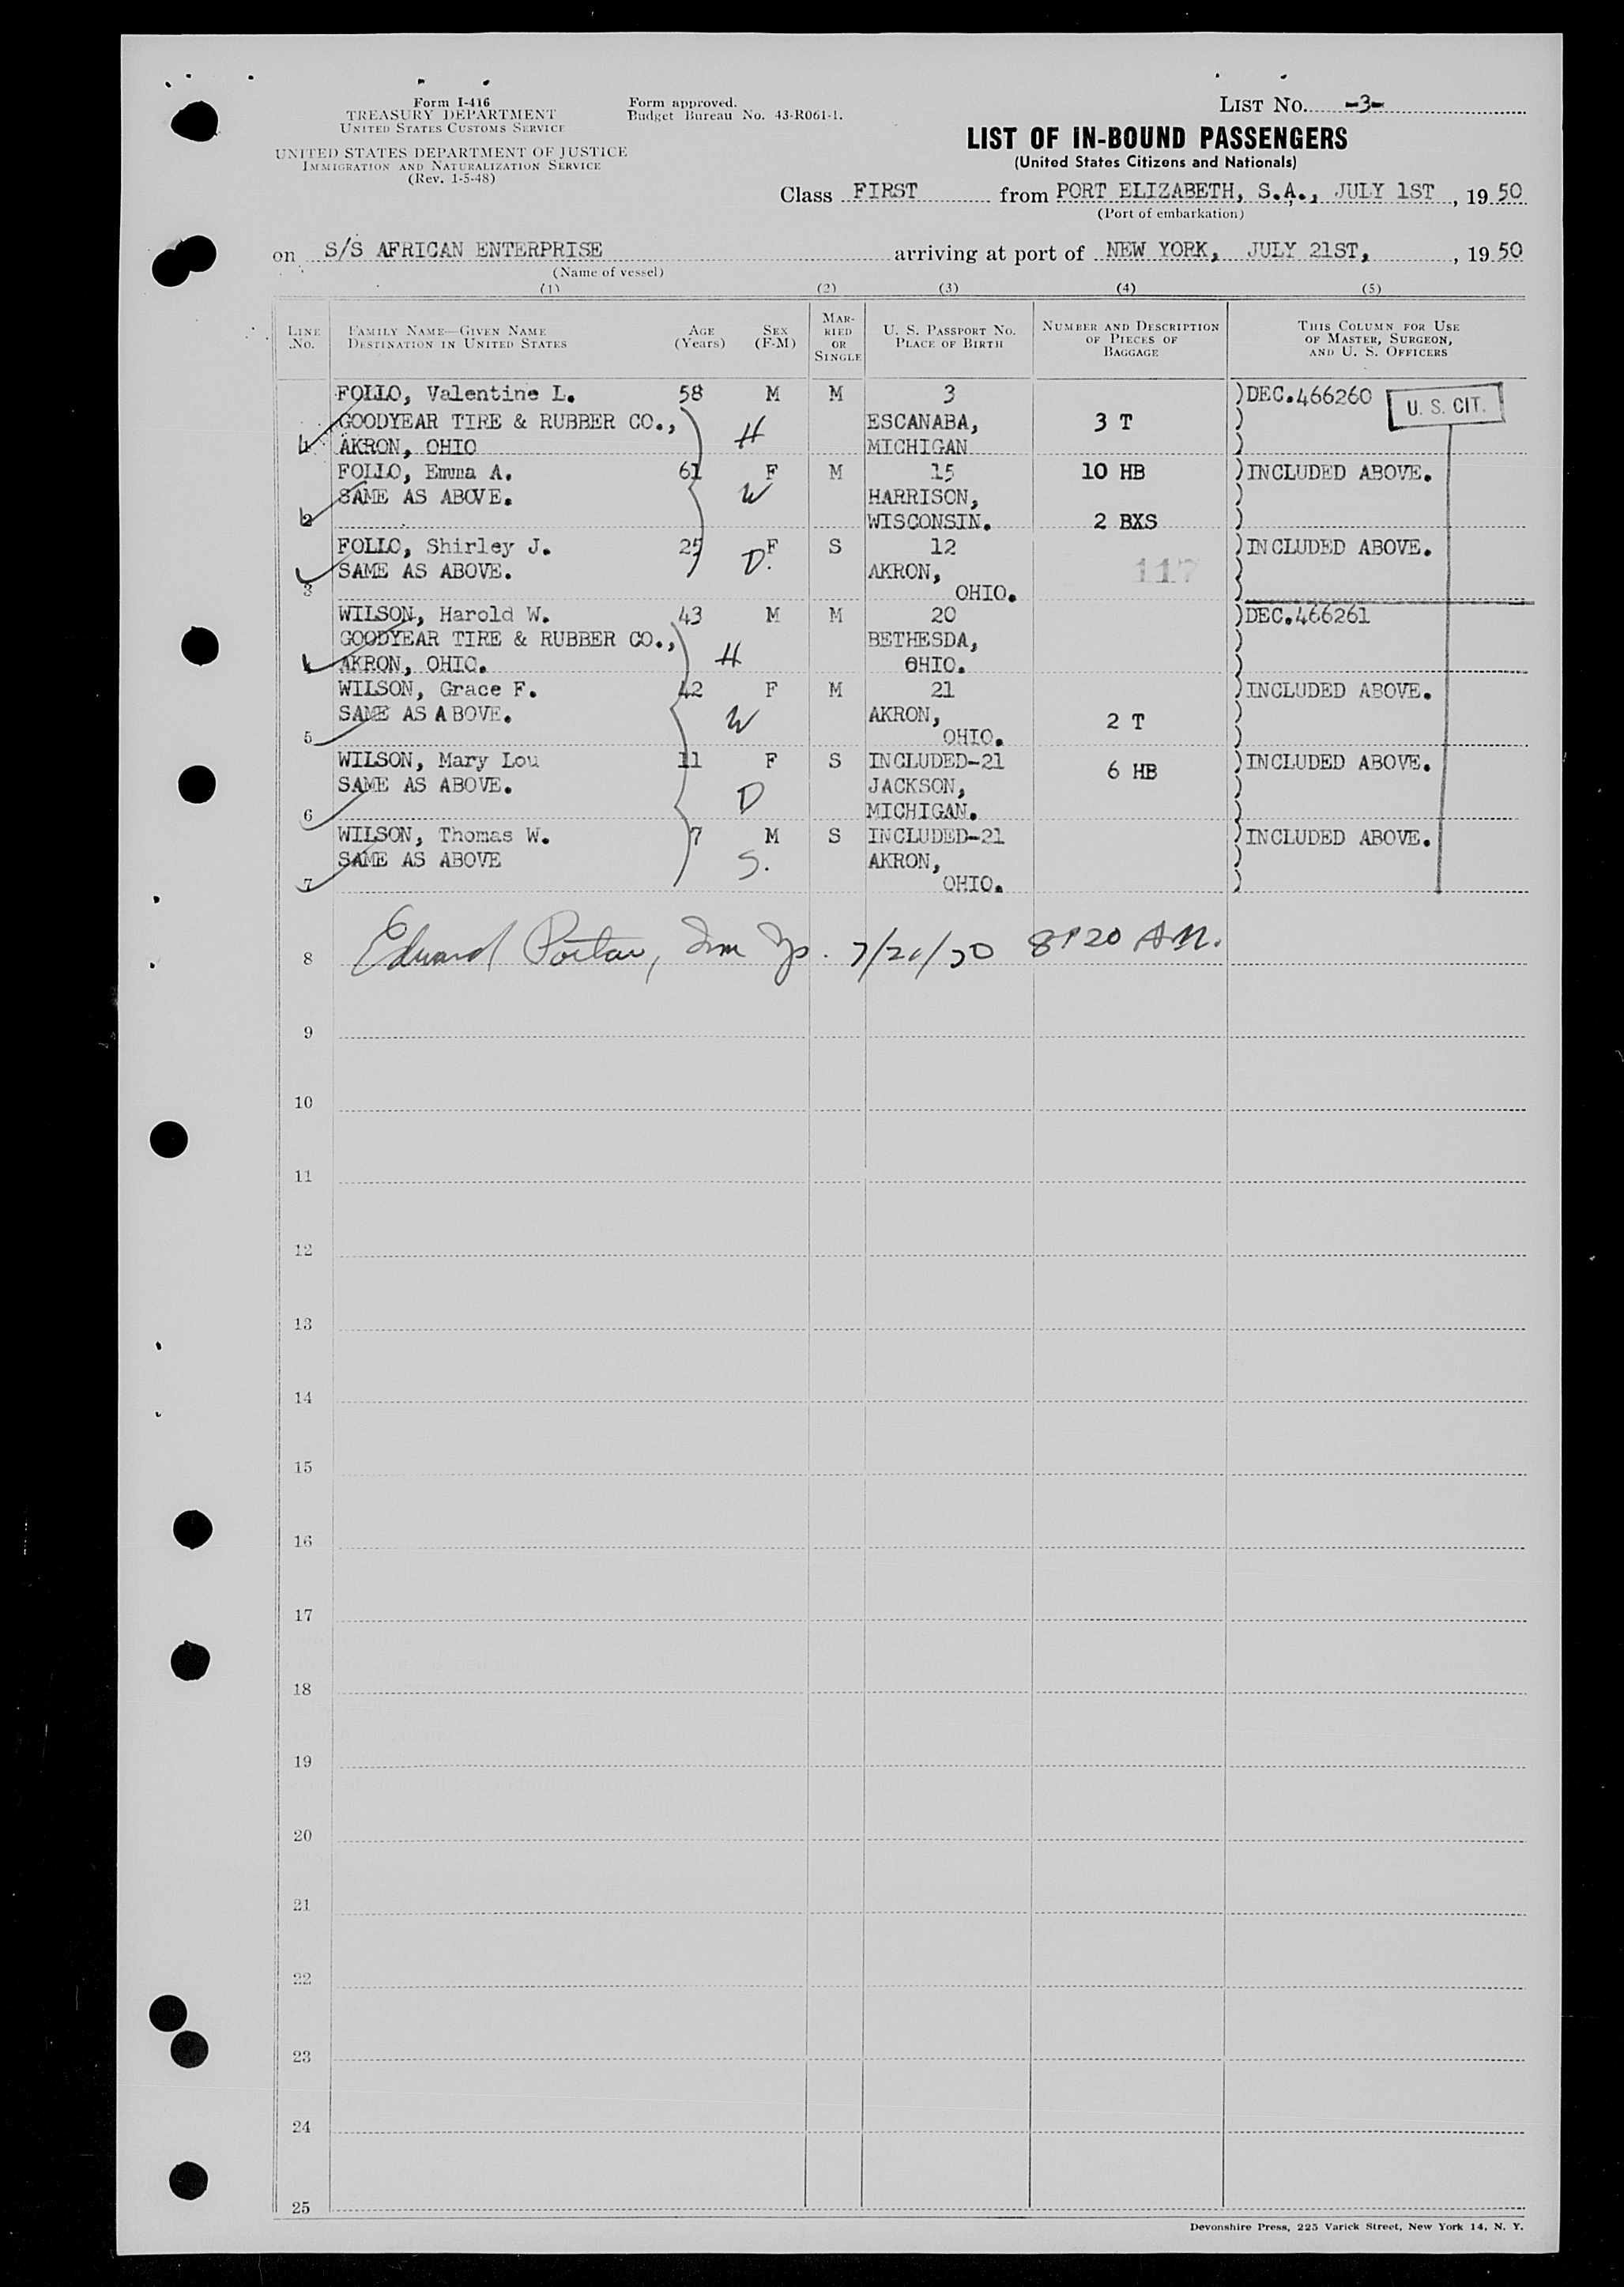 Form I-416
TREASURY DEPARTMENT
UNITED STATES CUSTOMS SERVICE
UNITED STATES DEPARTMENT OF JUSTICE
IMMIGRATION AND NATURALIZATION SERVICE
(Rev. 1-5-48)
Form approved.
Budget Bureau No. 43-R061-1.
LIST NO. -3-
LIST OF IN-BOUND PASSENGERS
(United States Citizens and Nationals)
Class FIRST from PORT ELIZABETH, S.A., JULY 1ST, 1950
(Port of embarkation)
on S/S AFRICAN ENTERPRISE arriving at port of NEW YORK, JULY 21ST, , 1950
(Name of vessel)
(1) (2) (3) (4) (5)
LINE NO. FAMILY NAME—GIVEN NAME DESTINATION IN UNITED STATES AGE (Years) SEX (F-M) MARRIED OR SINGLE U. S. PASSPORT NO. PLACE OF BIRTH NUMBER AND DESCRIPTION OF PIECES OF BAGGAGE THIS COLUMN FOR USE OF MASTER, SURGEON, AND U. S. OFFICERS
FOLLO, Valentine L. 58 M M 3 )DEC.466260 U. S. CIT.
GOODYEAR TIRE & RUBBER CO., H ESCANABA, 3 T )
1 AKRON, OHIO MICHIGAN )
FOLLO, Emma A. 61 F M 15 10 HB )INCLUDED ABOVE.
SAME AS ABOVE. W HARRISON, )
2 WISCONSIN. 2 BXS )
FOLLO, Shirley J. 25 F S 12 )INCLUDED ABOVE.
SAME AS ABOVE. D. AKRON, 117 )
3 OHIO. )
WILSON, Harold W. 43 M M 20 )DEC.466261
GOODYEAR TIRE & RUBBER CO., H BETHESDA, )
4 AKRON, OHIO. OHIO. )
WILSON, Grace F. 42 F M 21 )INCLUDED ABOVE.
SAME AS ABOVE. W AKRON, 2 T )
5 OHIO. )
WILSON, Mary Lou 11 F S INCLUDED-21 6 HB )INCLUDED ABOVE.
SAME AS ABOVE. D JACKSON, )
6 MICHIGAN. )
WILSON, Thomas W. 7 M S INCLUDED-21 )INCLUDED ABOVE.
SAME AS ABOVE S. AKRON, )
7 OHIO. )
8 Edward 8:20 AM.
9
10
11
12
13
14
15
16
17
18
19
20
21
22
23
24
25
Devonshire Press, 225 Varick Street, New York 14, N. Y.